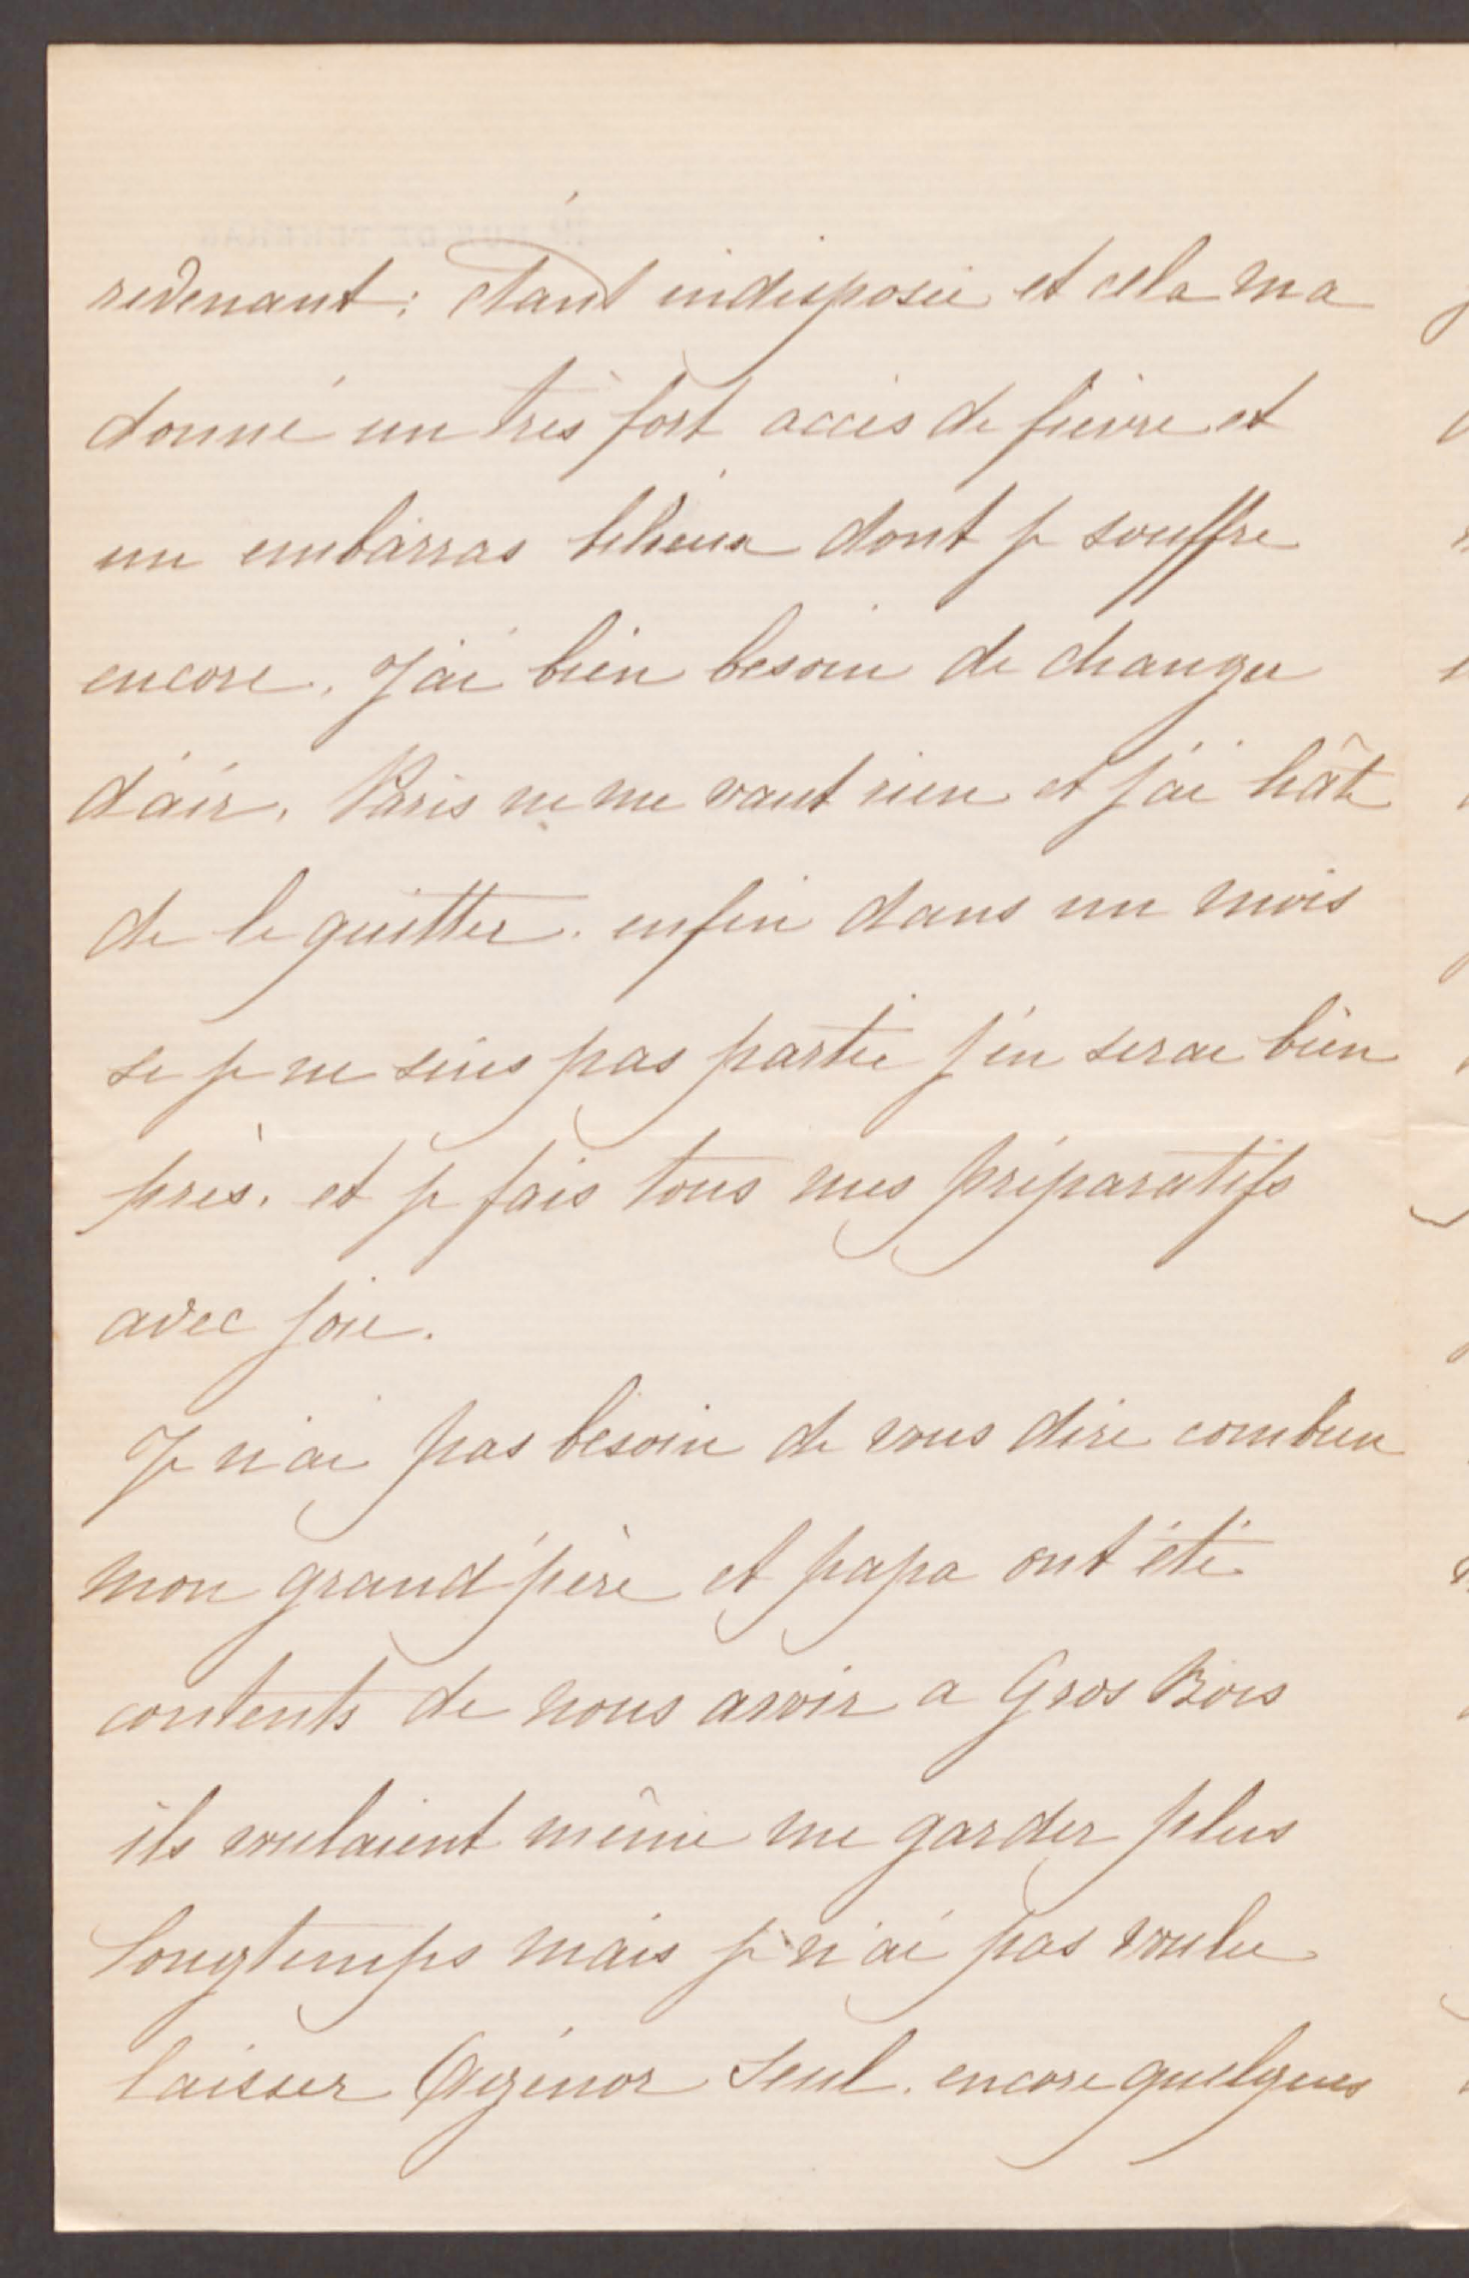 revenant; étant indisposée et cela ma
donné un très fort accès de fièvre et
un embarras bilieux dont je souffre
encore. J'ai bien besoin de changer
d'air. Paris ne me vaut rien et j'ai hâte
de le quitter. enfin dans un mois
si je ne suis pas partie j'en serai bien
près. et je fais tous mes préparatifs
avec joie.
Je n'ai pas besoin de vous dire combien
mon grand'père et papa ont été
contents de nous avoir a Gros Bois
ils voulaient même me garder plus
longtemps mais je n'ai pas voulu
laisser Agénor seul. encore quelques